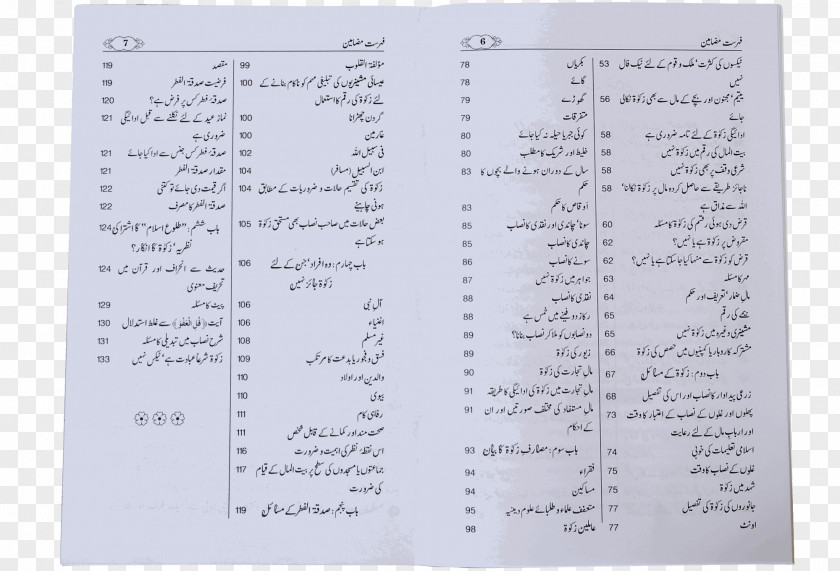 فہرست مضامین
6
ٹیکسوں کی کثرت‘ ملک و قوم کے لئے نیک فال 53
نہیں
یتیم‘ مجنون اور بچے کے مال سے بھی زکوٰۃ نکالی 56
جائے
ادائیگی زکوٰۃ کے لئے نامہ ضروری ہے 58
بیت المال کی رقم میں زکوٰۃ نہیں 58
شرعی وقف پر بھی زکوٰۃ نہیں 58
ناجائز طریقے سے حاصل کردہ مال پر زکوٰۃ نکالنا‘ 58
اللہ سے مذاق ہے
قرض دی ہوئی رقم کی زکوٰۃ کا مسئلہ 60
مقروض پر زکوٰۃ ہے یا نہیں؟ 62
قرض کو زکوٰۃ سے منہا کیا جا سکتا ہے یا نہیں؟ 62
مہر کا مسئلہ 63
مال ضمار‘ تعریف اور حکم 64
جمے کی رقم 65
مشینری وغیرہ میں زکوٰۃ نہیں 65
مشترکہ کاروبار یا کمپنیوں میں حصص کی زکوٰۃ 66
باب دوم: زکوٰۃ کے مسائل 67
زرعی پیداوار کا نصاب اور اس کی تفصیل 68
پھلوں اور غلوں کے نصاب کے اعتبار کا وقت 73
اور ارباب مال کے لئے رعایت
اسلامی تعلیمات کی خوبی 74
غلوں کے نصاب کا وقت 75
شہد میں زکوٰۃ 75
جانوروں کی زکوٰۃ کی تفصیل 77
اونٹ 77
بکریاں 78
گائے 78
گھوڑے 79
متفرقات 79
کوئی جبر یا حیلہ نہ کیا جائے 80
خلیط اور شریک کا مطلب 80
سال کے دوران ہونے والے بچوں کا 83
حکم
اوقاص کا حکم 83
سونا‘ چاندی اور نقدی کا نصاب 85
چاندی کا نصاب 85
سونے کا نصاب 86
جواہر میں زکوٰۃ نہیں 87
نقدی کا نصاب 88
رکاز دوفینے میں خمس ہے 88
دو نصابوں کو ملا کر نصاب بنانا؟ 89
زیور کی زکوٰۃ 89
مال تجارت کی زکوٰۃ 90
مال تجارت میں زکوٰۃ کی ادائیگی کا طریقہ 91
مال مستفاد کی مختلف صورتیں اور ان 91
کے احکام
باب سوم: مصارف زکوٰۃ کا بیان 93
فقراء 94
مساکین 94
متعفف علماء و طلبائے علوم دینیہ 95
عاملین زکوٰۃ 98
فہرست مضامین
7
مؤلفۃ القلوب 99
عیسائی مشینریوں کی تبلیغی مہم کو ناکام بنانے کے 100
لئے زکوٰۃ کی رقم کا استعمال
گردن چھڑانا 100
غارمین 100
فی سبیل اللہ 102
ابن السبیل (مسافر) 104
زکوٰۃ کی تقسیم حالات و ضروریات کے مطابق 104
ہونی چاہیئے
بعض حالات میں صاحب نصاب بھی مستحق زکوٰۃ 105
ہو سکتا ہے
باب چہارم: وہ افراد‘ جن کے لئے 106
زکوٰۃ جائز نہیں
آل نبی 106
اغنیاء 106
غیر مسلم 108
فسق و فجور یا بدعت کا مرتکب 109
والدین اور اولاد 110
بیوی 110
رفاہی کام 111
صحت مند اور کمانے کے قابل شخص 111
اس نقطۂ نظر کی اہمیت و ضرورت 116
جماعتوں یا مسجدوں کی سطح پر بیت المال کے قیام 117
کی ضرورت
باب پنجم: صدقۃ الفطر کے مسائل 119
مقصد 119
فرضیت صدقۃ الفطر 119
صدقہ فطر کس پر فرض ہے؟ 120
نماز عید کے لئے نکلنے سے قبل ادائیگی 121
ضروری ہے
صدقہ فطر کس جنس سے ادا کیا جائے 121
مقدار صدقۃ الفطر 121
اگر قیمت دی جائے تو کتنی 122
صدقۃ الفطر کا مصرف 122
باب ششم: ”طلوع اسلام“ کا اشتراکی 124
نظریہ‘ زکوٰۃ کا انکار؟
حدیث سے انحراف اور قرآن میں 124
تحریف معنوی
پیٹ کا مسئلہ 129
آیت ﴿قل العفو﴾ سے غلط استدلال 130
شرح نصاب میں تبدیلی کا مسئلہ 131
زکوٰۃ شرعاً عبادت ہے‘ ٹیکس نہیں 133